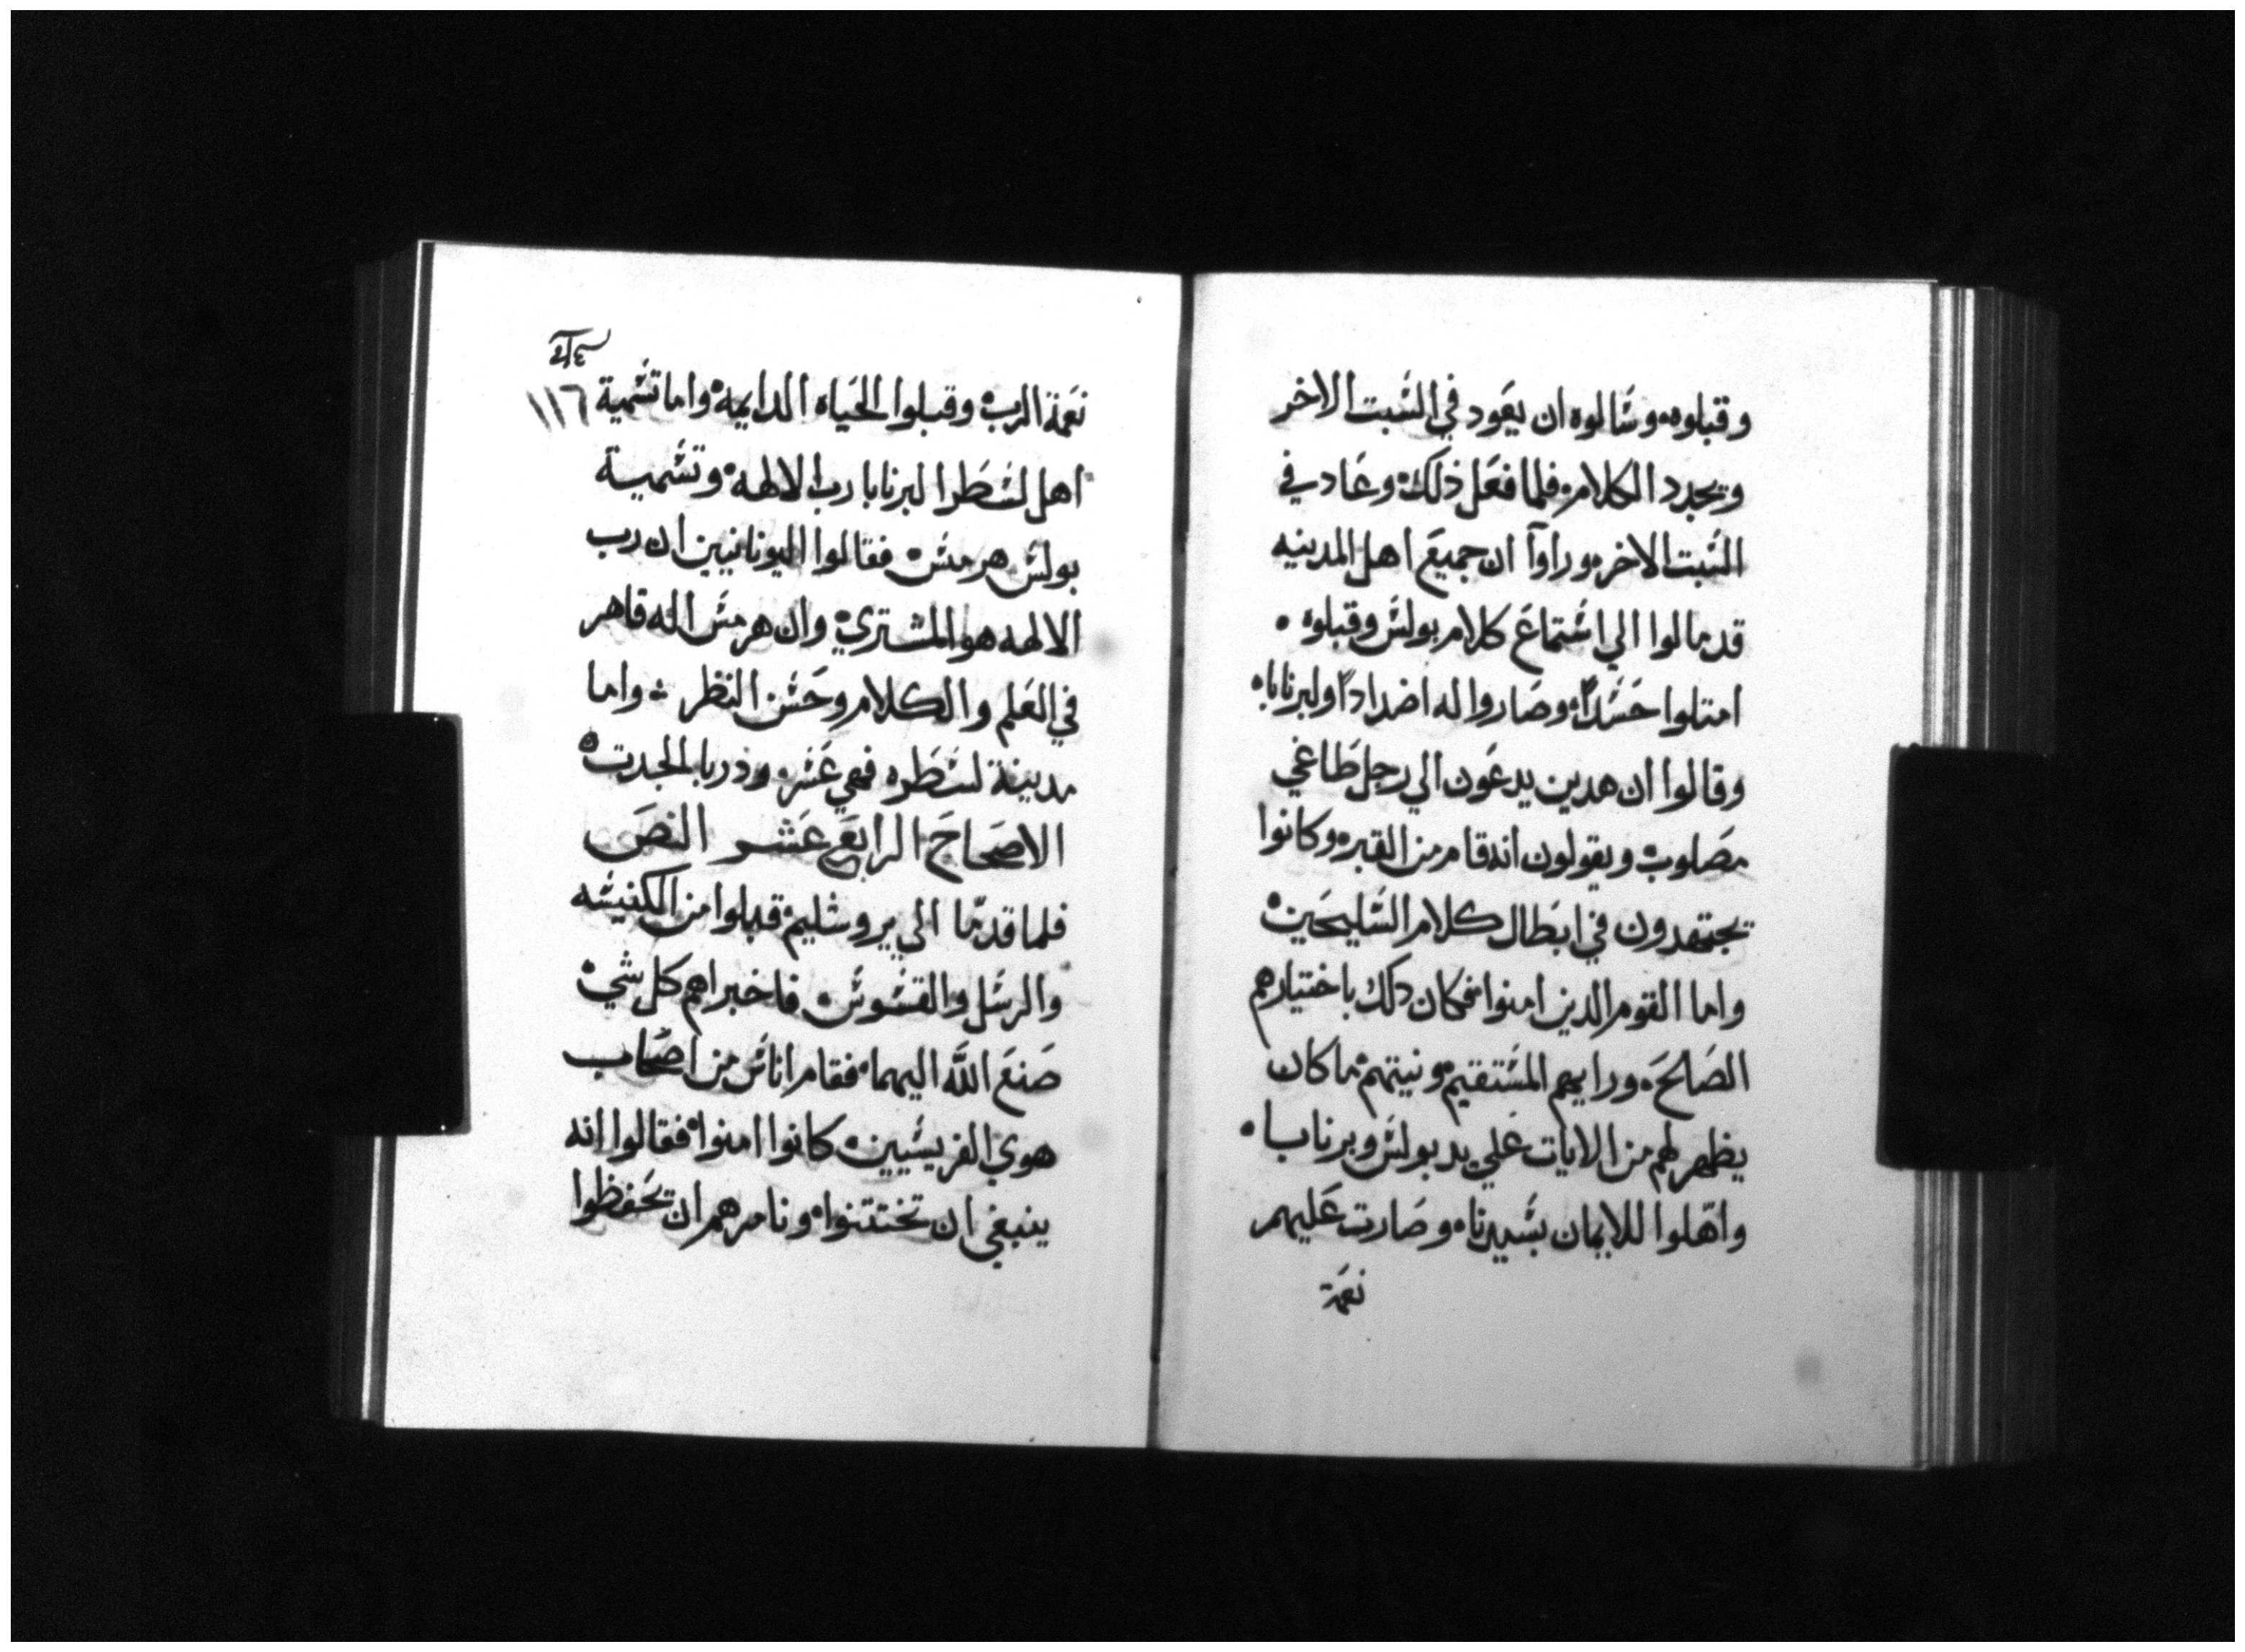 وقبلوه وسالوه ان يعود في السبت الاخر
ويجدد الكلام فلما فعل ذلك وعاد في
السبت الاخر وراوا ان جميع اهل المدينه
قد مالوا الي استماع كلام بولس وقبلوه
امتلوا حسداً وصاروا له اضداداً ولبرنابا
وقالوا ان هدين يدعون الي رجل طاغي
مصلوب ويقولون انه قام من القبر وكانوا
يجتهدون في ابطال كلام السليحين
واما القوم الدين امنوا فكان دلك باختيارهم
الصالح ورايهم المستقيم ونيتهم ما كان
يظهر لهم من الايات علي يد بولس وبرنابا
واهلوا للايمان بسيرنا وصارت عليهم
نعمة
١١٦
نعمة الرب وقبلوا الحياه الدايمة واما تسمية
اهل لسطرا لبرنابا رب الالهة وتسمية
بولس هرمس فقالوا اليونانيين ان رب
الالهه هو المشتري وان هرمس اله قاهر
في العلم والكلام وحسن النظر واما
مدينة لسطره فهي عشر ودربا المجدت
الاصحاح الرابع عشر النص
فلما قدما الي يروشليم قبلوا من الكنيسه
والرسل والقسوس فاخبراهم كل شي
صنع الله اليهما فقام اناس من اصحاب
هوي الفريسيين كانوا امنوا فقالوا انه
ينبغي ان تختتنوا ونامرهم ان تحفظوا